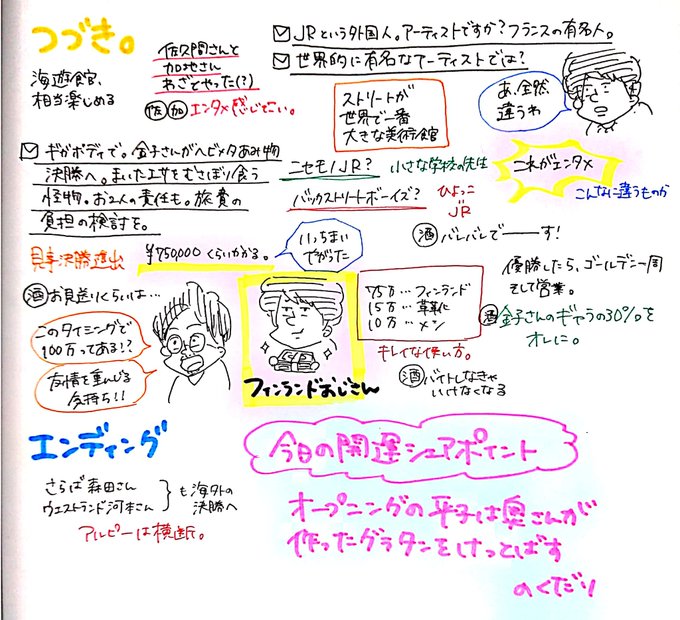 つづき。
海遊館、
相当楽しめる
佐久間さんと
加地さん
わざとやった(?)
佐 加 エンタメ感じてこい。
JRという外国人。アーティストですか?フランスの有名人。
世界的に有名なアーティストでは?
ストリートが
世界で一番
大きな美術館
あ、全然
違うわ
ギガボディで。金子さんがヘビメタあみ物
決勝へ。まいたエサをむさぼり食う
怪物。お2人の責任も。旅費の
負担の検討を。
ニセモノJR? 小さな学校の先生
バックストリートボーイズ?
ひよっこ
=
JR
これがエンタメ
こんなに違うものか
酒 バレバレでーーす!
見事決勝進出
¥750,000くらいかかる。
いっちまい
でがった
酒 お見送りくらいは…
このタイミングで
100万ってある!?
友情を重んじる
気持ち!!
フィンランドおじさん
75万…フィンランド
15万…草華化
10万…メン
キレイな使い方。
酒 バイトしなきゃ
いけなくなる
優勝したら、ゴールデン一周
そして営業。
酒 金子さんのギャラの30%を
オレに。
エンディング
さらば森田さん
ウエストランド河本さん
も海外の
決勝へ
アルピーは横断。
今日の開運シェアポイント
オープニングの平子は奥さんが
作ったグラタンをけっとばす
のくだり